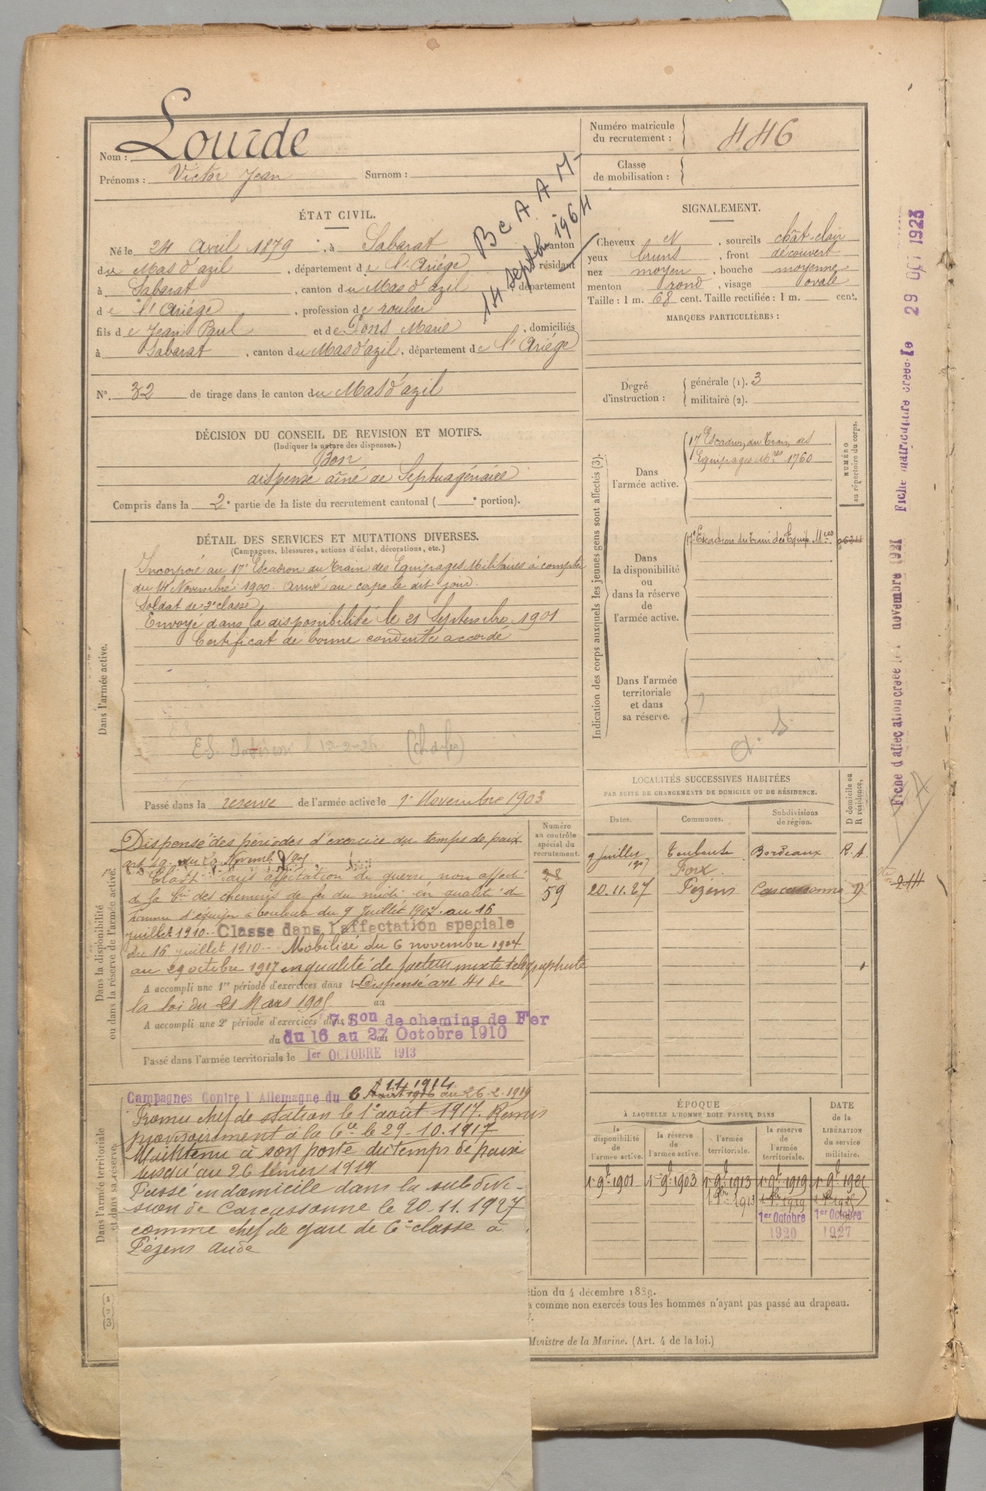 Nom : Lourde
Prénoms : Victor Jean Surnom :
Numéro matricule du recrutement : 446
Classe de mobilisation :
Bc A A M
14 Septbre 1964
ÉTAT CIVIL.
Né le 24 Avril 1879, à Sabarat, canton
du Mas d'azil, département de l'Ariège, résidant
à Sabarat, canton du Mas d'azil, département
de l'Ariége, profession de roulier
fils de Jean Paul et de Pons Marie, domiciliés
à Sabarat, canton du Mas d'azil, département de l'Ariège
N° 32 de tirage dans le canton du Mas d'azil
SIGNALEMENT.
Cheveux N, sourcils chât-clair
yeux bruns, front découvert
nez moyen, bouche moyenne
menton rond, visage ovale
Taille : 1 m. 68 cent. Taille rectifiée : 1 m. cent.
MARQUES PARTICULIÈRES :
Degré d'instruction : générale (1). 3
militaire (2).
DÉCISION DU CONSEIL DE REVISION ET MOTIFS.
(Indiquer la nature des dispenses.)
Bon
dispensé aîné de Septuagénaire
Compris dans la 2e partie de la liste du recrutement cantonal ( e portion).
DÉTAIL DES SERVICES ET MUTATIONS DIVERSES.
(Campagnes, blessures, actions d'éclat, décorations, etc.)
Dans l'armée active.
Incorporé au 17e Escadron du Train des Equipages Militaires à compter
du 14 Novembre 1900. Arrivé au corps le dit jour.
Soldat de 2e classe
Envoyé dans la disponibilité le 21 Septembre 1901
Certificat de bonne conduite accordé
Passé dans la réserve de l'armée active le 1er Novembre 1903
Indication des corps auxquels les jeunes gens sont affectés (3).
NUMÉRO au répertoire du corps.
Dans l'armée active.
17e Escadron du Train des
Equipages Mres 1760
Dans la disponibilité ou dans la réserve de l'armée active.
17e Escadron du Train des Equip. Mres
Dans l'armée territoriale et dans sa réserve.
LOCALITÉS SUCCESSIVES HABITÉES
PAR SUITE DE CHANGEMENTS DE DOMICILE OU DE RÉSIDENCE.
Dates. Communes. Subdivisions de région. D domicile ou R résidence.
9 Juillet Toulouse Bordeaux R. A
Foix
20.11.27 Pezens Carcassonne D
214
Numéro au contrôle spécial du recrutement.
28
59
Dans la disponibilité ou dans la réserve de l'armée active.
Dispensé des périodes d'exercice du temps de paix
de la Cie des chemins de fer du midi en qualité de
homme d'équipe à Toulouse du 9 Juillet 1902 au 16
juillet 1910. Classé dans l'affectation spéciale
du 16 juillet 1910. Mobilisé du 6 novembre 1914
au 29 octobre 1917 en qualité de facteur mixte télégraphiste
A accompli une 1re période d'exercices dans l Dispensé art 41 de
la loi du 21 Mars 1905 au
A accompli une 2e période d'exercices dans 7 Son de chemins de Fer
du 16 au 27 Octobre 1910
Passé dans l'armée territoriale le 1er OCTOBRE 1913
Dans l'armée territoriale et dans sa réserve.
Campagnes Contre l'Allemagne du 6 11 1914 au 26-2-1919
Promu chef de station le 1er août 1917. Remis
provisoirement à la 6ce le 29.10.1917
Maintenu à son poste du temps de paix
jusqu'au 26 février 1919
Passé en domicile dans la subdivi-
sion de Carcassonne le 20.11.1927
comme chef de gare de 6e classe à
Pézens Aude
ÉPOQUE
À LAQUELLE L'HOMME DOIT PASSER DANS
DATE de la LIBÉRATION du service militaire.
la disponibilité de l'armée active. la réserve de l'armée active. l'armée territoriale. la réserve de l'armée territoriale.
1er 9bre 1901 1er 9bre 1903 1er 9bre 1913 1er 9bre 1919
1er Octobre 1920
1er Octobre 1927
tion du 4 décembre 1889.
comme non exercés tous les hommes n'ayant pas passé au drapeau.
Ministre de la Marine. (Art. 4 de la loi.)
Fiche d'affectation créée le novembre 1921
Fiche matriculaire créée le 29 1923